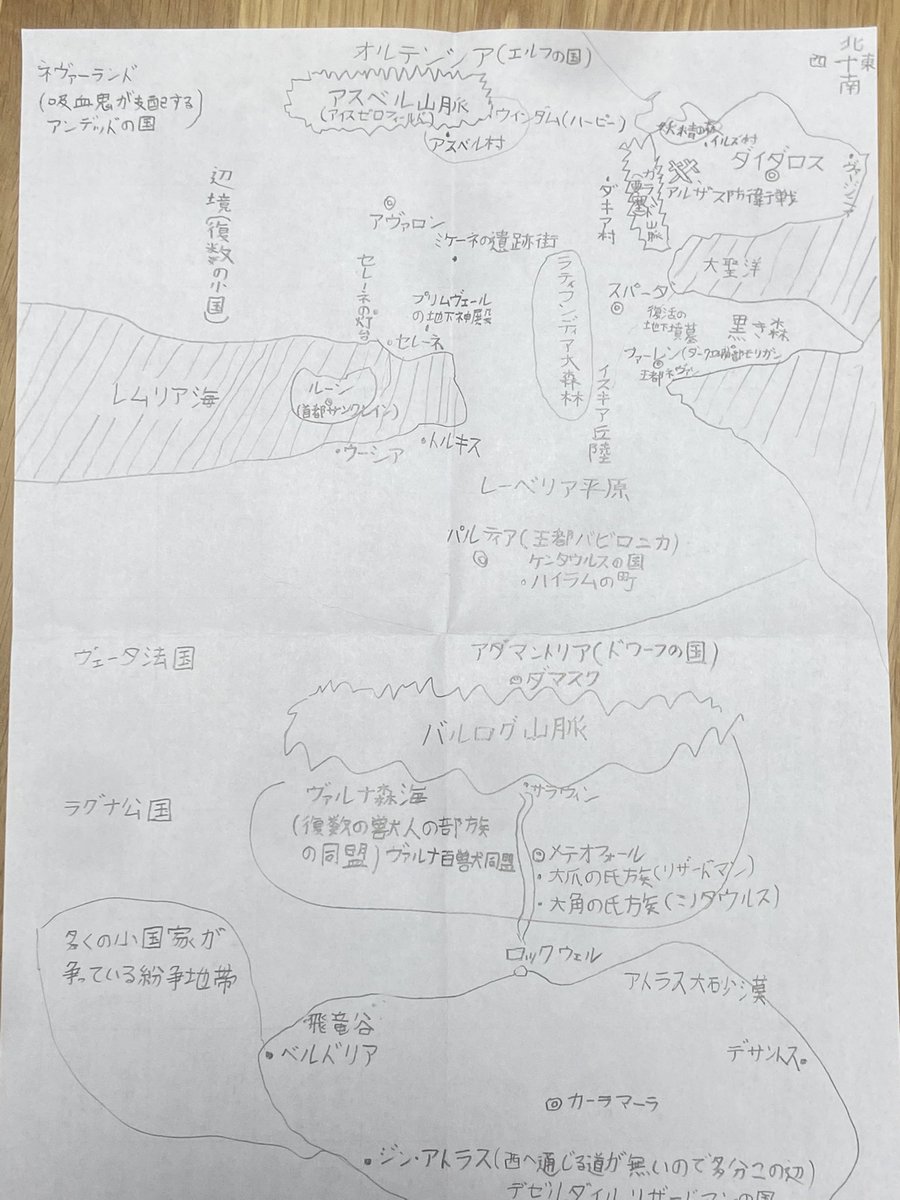 北
西 十 東
南
オルテンシア(エルフの国)
ネヴァーランド
(吸血鬼が支配する)
アンデッドの国
アスベル山脈
(アイスゼロフィールド)
ウインダム(ハーピー)
アスベル村
妖精の森
・イルズ村
ダイダロス
ヴァージニア
ガラハド山脈
要塞
アルザス防衛戦
・ダキア村
辺境(復数の小国)
アヴァロン
ミケーネの遺跡街
セレーネの灯台
プリムヴェール
の地下神殿
・セレーネ
ラティフンディア大森林
大聖洋
スパーダ
復法の
地下墳墓
黒き森
ファーレン
王都ネヴァン
イスキア丘陸
レムリア海
ルーン
(首都サンクレイン)
・ウーシア
・トルキス
レーベリア平原
パルティア(王都バビロニカ)
ケンタウルスの国
・ハイラムの町
ヴェータ法国
アダマントリア(ドワーフの国)
ダマスク
バルログ山脈
ラグナ公国
ヴァルナ森海
(復数の獣人の部族
の同盟)ヴァルナ百獣同盟
・サラウィン
メテオフォール
・大爪の氏族(リザードマン)
・大角の氏族(ミノタウルス)
多くの小国家が
争っている紛争地帯
ロックウェル
アトラス大砂漠
飛竜谷
・ベルドリア
デサントス・
カーラマーラ
・ジン・アトラス(西へ通じる道が無いので多分この辺)